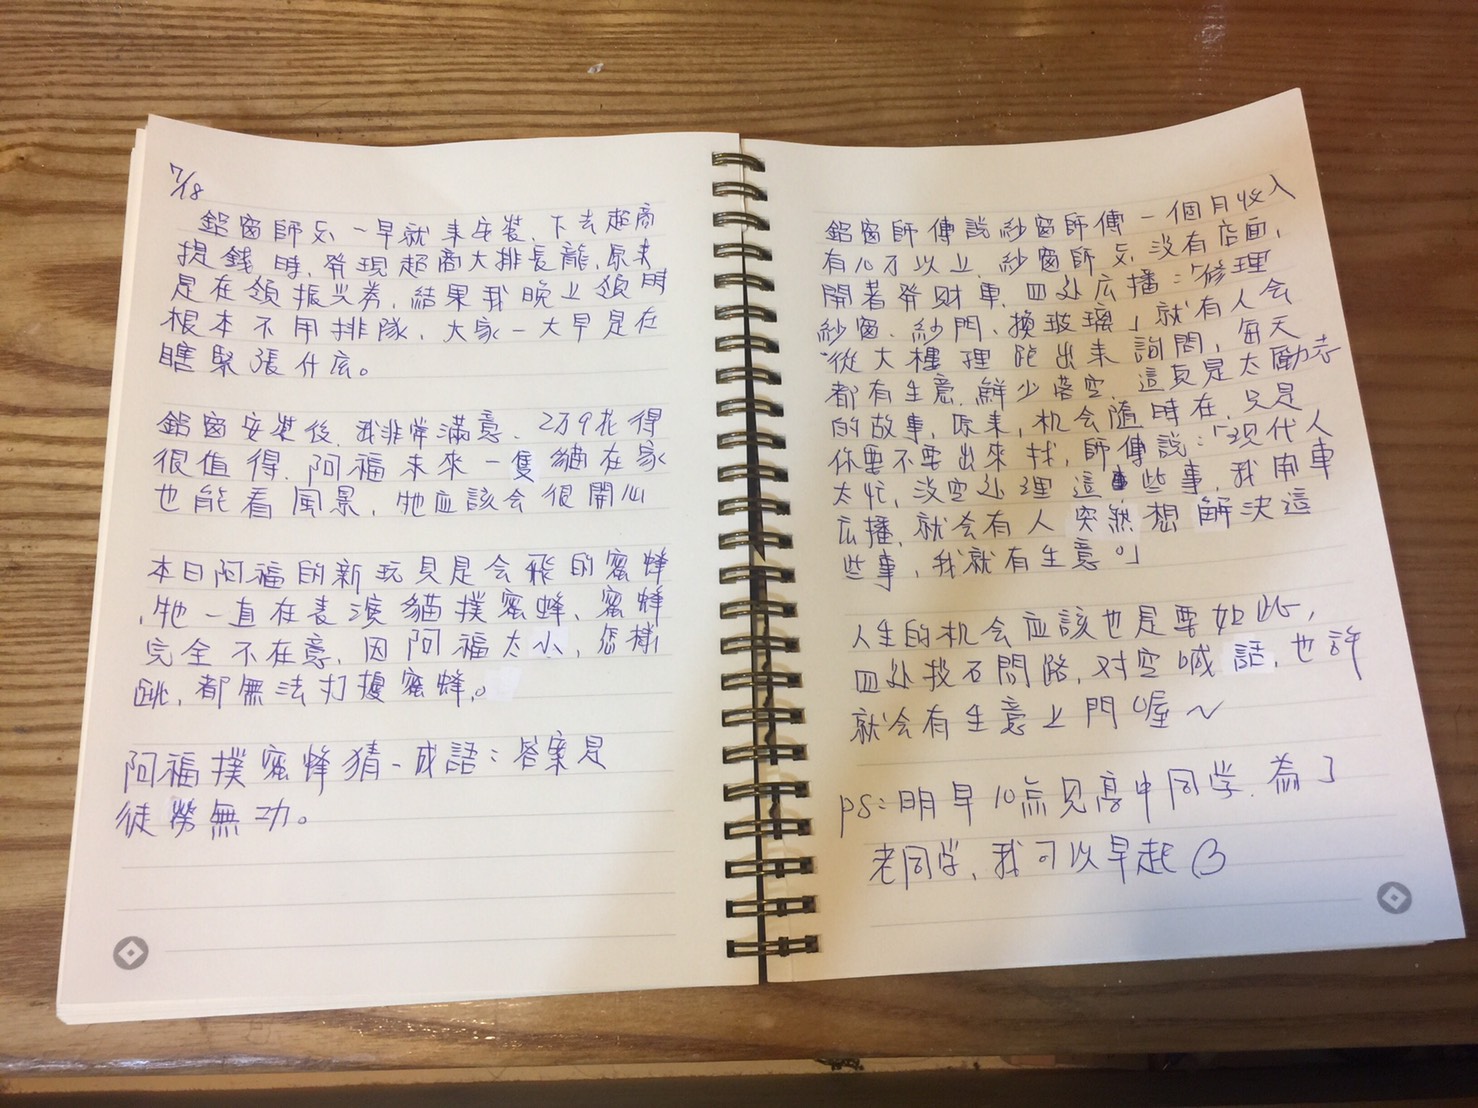 7/18
鋁窗師父一早就來安裝、下去超商
提錢時,發現超商大排長龍,原來
是在領振興券,結果我晚上領時
根本不用排隊,大家一大早是在
瞎緊張什広。
鋁窗安裝後,我非常滿意,2万9花得
很值得,阿福未來一隻貓在家
也能看風景,牠应該会很開心
本日阿福的新玩具是会飛的蜜蜂
,牠一直在表演貓撲蜜蜂,蜜蜂
完全不在意,因阿福太小,怎樣
跳,都無法打擾蜜蜂。
阿福撲蜜蜂猜一成語:答案是
徒勞無功。
鋁窗師傅說紗窗師傅一個月收入
有10万以上,紗窗師父沒有店面,
開著發財車,四处広播:「修理
紗窗、紗門、換玻璃」就有人会
從大樓裡跑出來詢問,每天
都有生意,鮮少落空,這真是太勵志
的故事,原來,机会隨時在,只是
你要不要出來找,師傅說:「現代人
太忙,沒空处理這些事,我開車
広播,就会有人突然想解決這
些事,我就有生意。」
人生的机会应該也是要如此,
四处投石問路,对空喊話,也許
就会有生意上門喔~
ps:明早10点見高中同学,為了
老同学,我可以早起